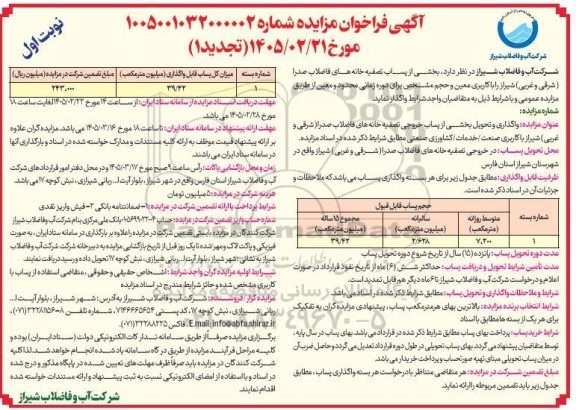 آگهی فراخوان مزایده شماره ۱۰۰۵۰۰۱۰۳۲۰۰۰۰۰۲
مورخ ۱۴۰۵/۰۲/۲۱ (تجدید۱)
نوبت اول
شرکت آب و فاضلاب شیراز
شرکت آب و فاضلاب شیراز در نظر دارد، بخشی از پساب تصفیه خانه های فاضلاب صدرا
(شرقی و غربی) شیراز را با کاربری معین و حجم مشخص برای دوره زمانی محدود و معین از طریق
مزایده عمومی و با شرایط ذیل به متقاضیان واجد شرایط واگذار نماید.
شماره مزایده:
عنوان مزایده: واگذاری و تحویل بخشی از پساب خروجی تصفیه خانه های فاضلاب صدرا (شرقی و
غربی) شیراز با کاربری صنعت / خدمات / کشاورزی صنعتی مطابق شرایط ذکر شده در اسناد مزایده.
محل تحویل پساب: در خروجی تصفیه خانه های فاضلاب صدرا (شرقی و غربی) شیراز واقع در
شهرستان شیراز استان فارس
ظرفیت قابل واگذاری: مطابق جدول زیر برای هر بسته واگذاری پساب می باشد که ملاحظات و
جزئیات آن در اسناد ذکر شده است.
حجم پساب قابل قبول
شماره بسته | متوسط روزانه (مترمکعب) | سالیانه (میلیون مترمکعب) | مجموع ۱۵ ساله (میلیون مترمکعب)
۱ | ۷,۲۰۰ | ۲/۶۲۸ | ۳۹/۴۲
مدت دوره تحویل پساب: پانزده (۱۵) سال از تاریخ شروع دوره تحویل پساب
مدت تأمین شرایط تحویل و دریافت پساب: حداکثر شش (۶) ماه از تاریخ نفوذ قرارداد در صورت
اعلام و درخواست شرکت آب و فاضلاب شیراز تا ۶ ماه دیگر هم قابل تمدید است.
شرایط و ملاحظات واگذاری و تحویل پساب: مطابق شرایط ذکر شده در اسناد می باشد.
شرایط انتخاب برنده مزایده: بالاترین بهای هر مترمکعب پساب، پیشنهادی مزایده گران به تفکیک
برای هر یک از بسته ها مطابق با اسناد
شرایط خرید پساب: پرداخت بهای پساب مطابق شرایط ذکر شده در قرارداد می باشد. بهای پساب در سال پایه،
توسط متقاضیان پیشنهاد می گردد. بهای پساب تحویلی در طول دوره قرارداد تعدیل می گردد و حاصل ضرب آن
در میزان پساب تحویلی مبنای تهیه صورتحساب و پرداخت خریدار می باشد.
مبلغ تضمین شرکت در مزایده: هر متقاضی متناظر با درخواست هر بسته واگذاری پساب، مطابق
جدول زیر باید تضمین مربوطه را ارائه نماید.
شماره بسته | میزان کل پساب قابل واگذاری (میلیون مترمکعب) | مبلغ تضمین شرکت در مزایده (میلیون ریال)
۱ | ۳۹/۴۲ | ۲۴۳,۰۰۰
مهلت دریافت اسناد مزایده از سامانه ستاد ایران: از ساعت ۱۴ مورخ ۱۴۰۵/۰۲/۲۲ لغایت ساعت ۱۸
مورخ ۱۴۰۵/۰۲/۲۸ می باشد.
مهلت ارائه پیشنهاد در سامانه ستاد ایران: تا ساعت ۱۸ مورخ ۱۴۰۵/۰۳/۱۶ می باشد. مزایده گران علاوه
بر ارائه پیشنهاد قیمت موظف به ارائه کلیه مستندات و مدارک خواسته شده در اسناد و بارگذاری آنها
در سامانه ستاد ایران می باشند.
زمان و محل بازگشایی پاکات: رأس ساعت ۹ صبح مورخ ۱۴۰۵/۰۳/۱۷ و در محل دفتر امور قراردادهای شرکت
آب و فاضلاب شیراز استان فارس واقع در شهر شیراز، بلوار آیت ا... ربانی شیرازی، نبش کوچه ۱۷ می باشد.
هزینه شرکت در مزایده: ۵ میلیون تومان
شرایط پرداخت یا ارائه تضمین شرکت در مزایده: ۱-ضمانتنامه بانکی ۲-فیش واریز نقدی
شرکت کنندگان در مزایده بایستی تضمین شرکت در مزایده را علاوه بر بارگذاری در سامانه ستاد ایران، به صورت
فیزیکی و پاکت لاک و مهر شده تا یک روز قبل از تاریخ بازگشایی مزایده به دبیرخانه شرکت آب و فاضلاب
شیراز به نشانی: شهر شیراز، بلوار آیت ا... ربانی شیرازی، نبش کوچه ۱۷ تحویل داده و رسید دریافت نمایند.
شرایط اولیه مزایده گران واجد شرایط: اشخاص حقیقی و حقوقی، متقاضی استفاده از پساب با
کاربری مشخص شده و حائز شرایط مندرج در اسناد مزایده
مزایده گزار / فروشنده: شرکت آب و فاضلاب شیراز به آدرس: شهر شیراز، بلوار آیت ا...
ربانی شیرازی، نبش کوچه ۱۷
Email: info@abfashiraz.ir
برگزاری مزایده صرفا از طریق سامانه تدارکات الکترونیکی دولت (ستاد ایران) بوده و
کلیه مراحل فرآیند مزایده از طریق درگاه سامانه یاد شده انجام خواهد شد. لذا کلیه
شرکت کنندگان در مزایده باید صرفا ظرف مهلت های تعیین شده در پایگاه مذکور و درج شده
در اسناد و با استفاده از امضای الکترونیکی نسبت به ثبت پیشنهاد و ارائه مستندات خواسته شده
اقدام نمایند.
شرکت آب و فاضلاب شیراز